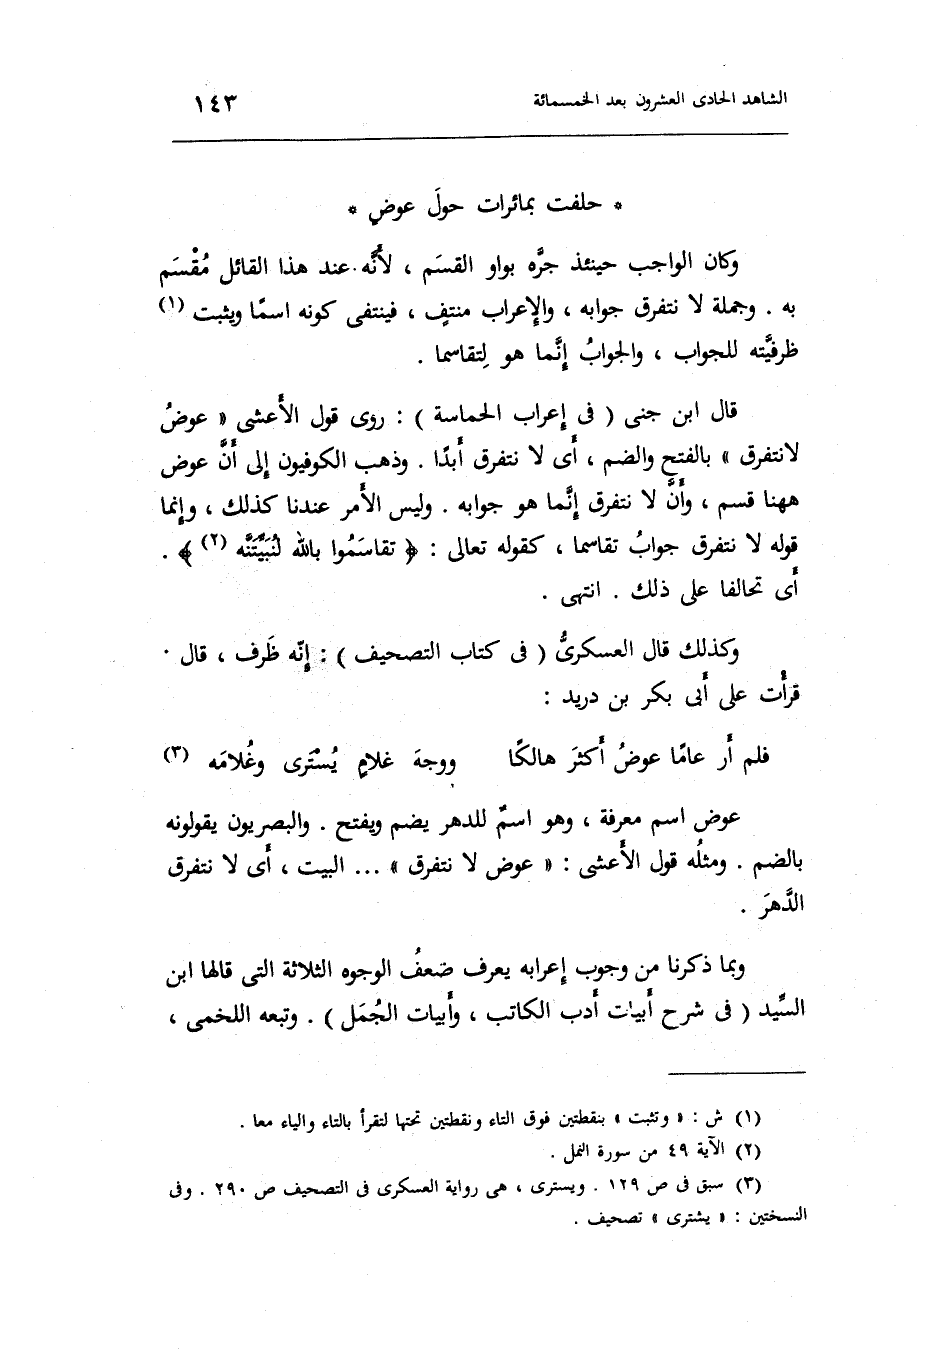 الشاهد الحادى العشرون بعد الخمسمائة ١٤٣
* حلفت بمائرات حولَ عوضِ *
وكان الواجب حينئذ جرَّه بواو القسَم ، لأنَّه عند هذا القائل مُقْسَم
به . وجملة لا نتفرق جوابه ، والإعراب منتفٍ ، فينتفى كونه اسمًا ويثبت (١)
ظرفيَّته للجواب ، والجوابُ إنَّما هو لِتقاسما .
قال ابن جنى ( فى إعراب الحماسة ) : روى قول الأَعشى « عوضُ
لانتفرق » بالفتح والضم ، أى لا نتفرق أبدًا . وذهب الكوفيون إلى أنَّ عوض
ههنا قسم ، وأنَّ لا نتفرق إنَّما هو جوابه . وليس الأَمر عندنا كذلك ، وإنما
قوله لا نتفرق جوابُ تقاسما ، كقوله تعالى : ﴿ تقاسَمُوا بالله لَنُبَيِّتَنَّه (٢) ﴾ .
أى تحالفا على ذلك . انتهى .
وكذلك قال العسكرىُّ ( فى كتاب التصحيف ) : إنّه ظَرف ، قال .
قرأْت على أَبى بكر بن دريد :
فلم أَر عامًا عوضُ أَكثرَ هالكًا ووجهَ غلامٍ يُسْتَرى وغُلامَه (٣)
عوض اسم معرفة ، وهو اسمٌ للدهر يضم ويفتح . والبصريون يقولونه
بالضم . ومثلُه قول الأَعشى : « عوض لا نتفرق » ... البيت ، أى لا نتفرق
الدَّهرَ .
وبما ذكرنا من وجوب إعرابه يعرف ضعفُ الوجوه الثلاثة التى قالها ابن
السِّيد ( فى شرح أَبيات أَدب الكاتب ، وأَبيات الجُمَل ) . وتبعه اللخمى ،
(١) ش : « وتثبت » بنقطتين فوق التاء ونقطتين تحتها لتقرأ بالتاء والياء معا .
(٢) الآية ٤٩ من سورة النمل .
(٣) سبق فى ص ١٢٩ . ويسترى ، هى رواية العسكرى فى التصحيف ص ٢٩٠ . وفى
النسختين : « يشترى » تصحيف .